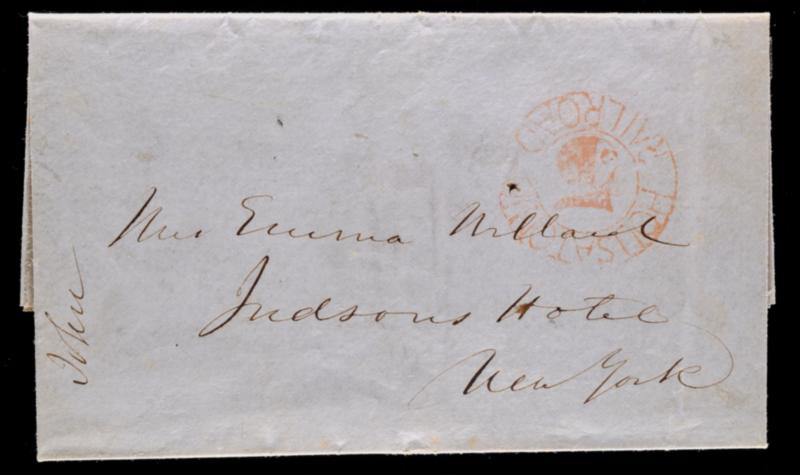 HOUSATONIC RAILROAD
Mrs Emma Willard
Judsons Hotel
New York
John